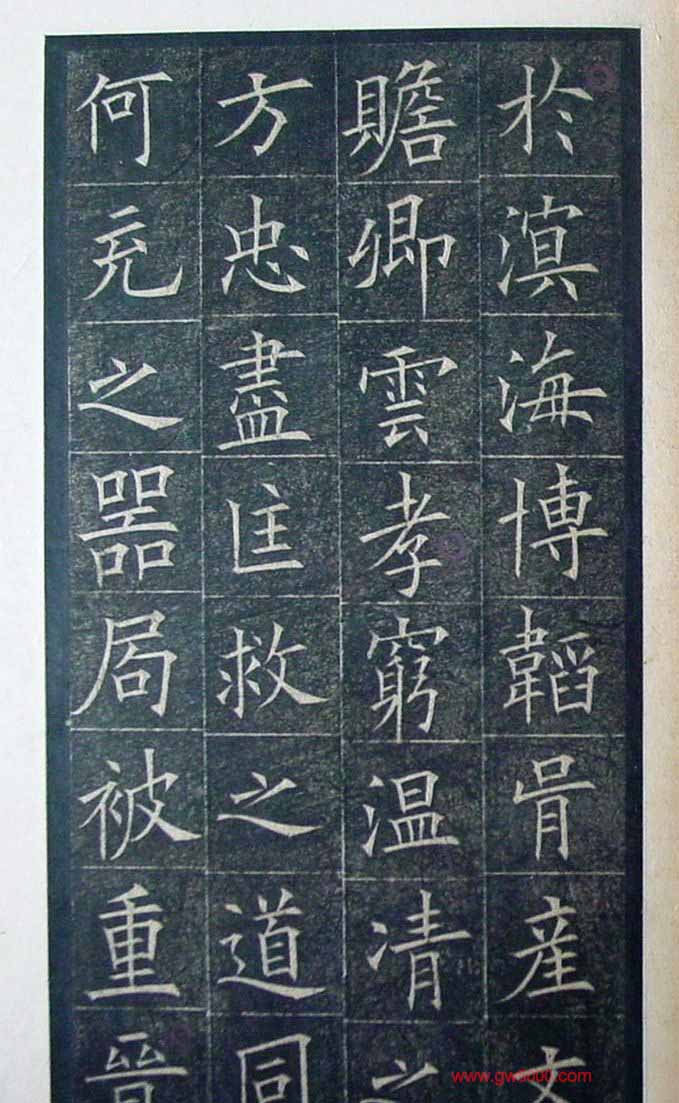 於溟海博韜胥産文
贍卿雲孝窮温凊之
方忠盡匡救之道同
何充之器局被重晉
www.gw5000.com